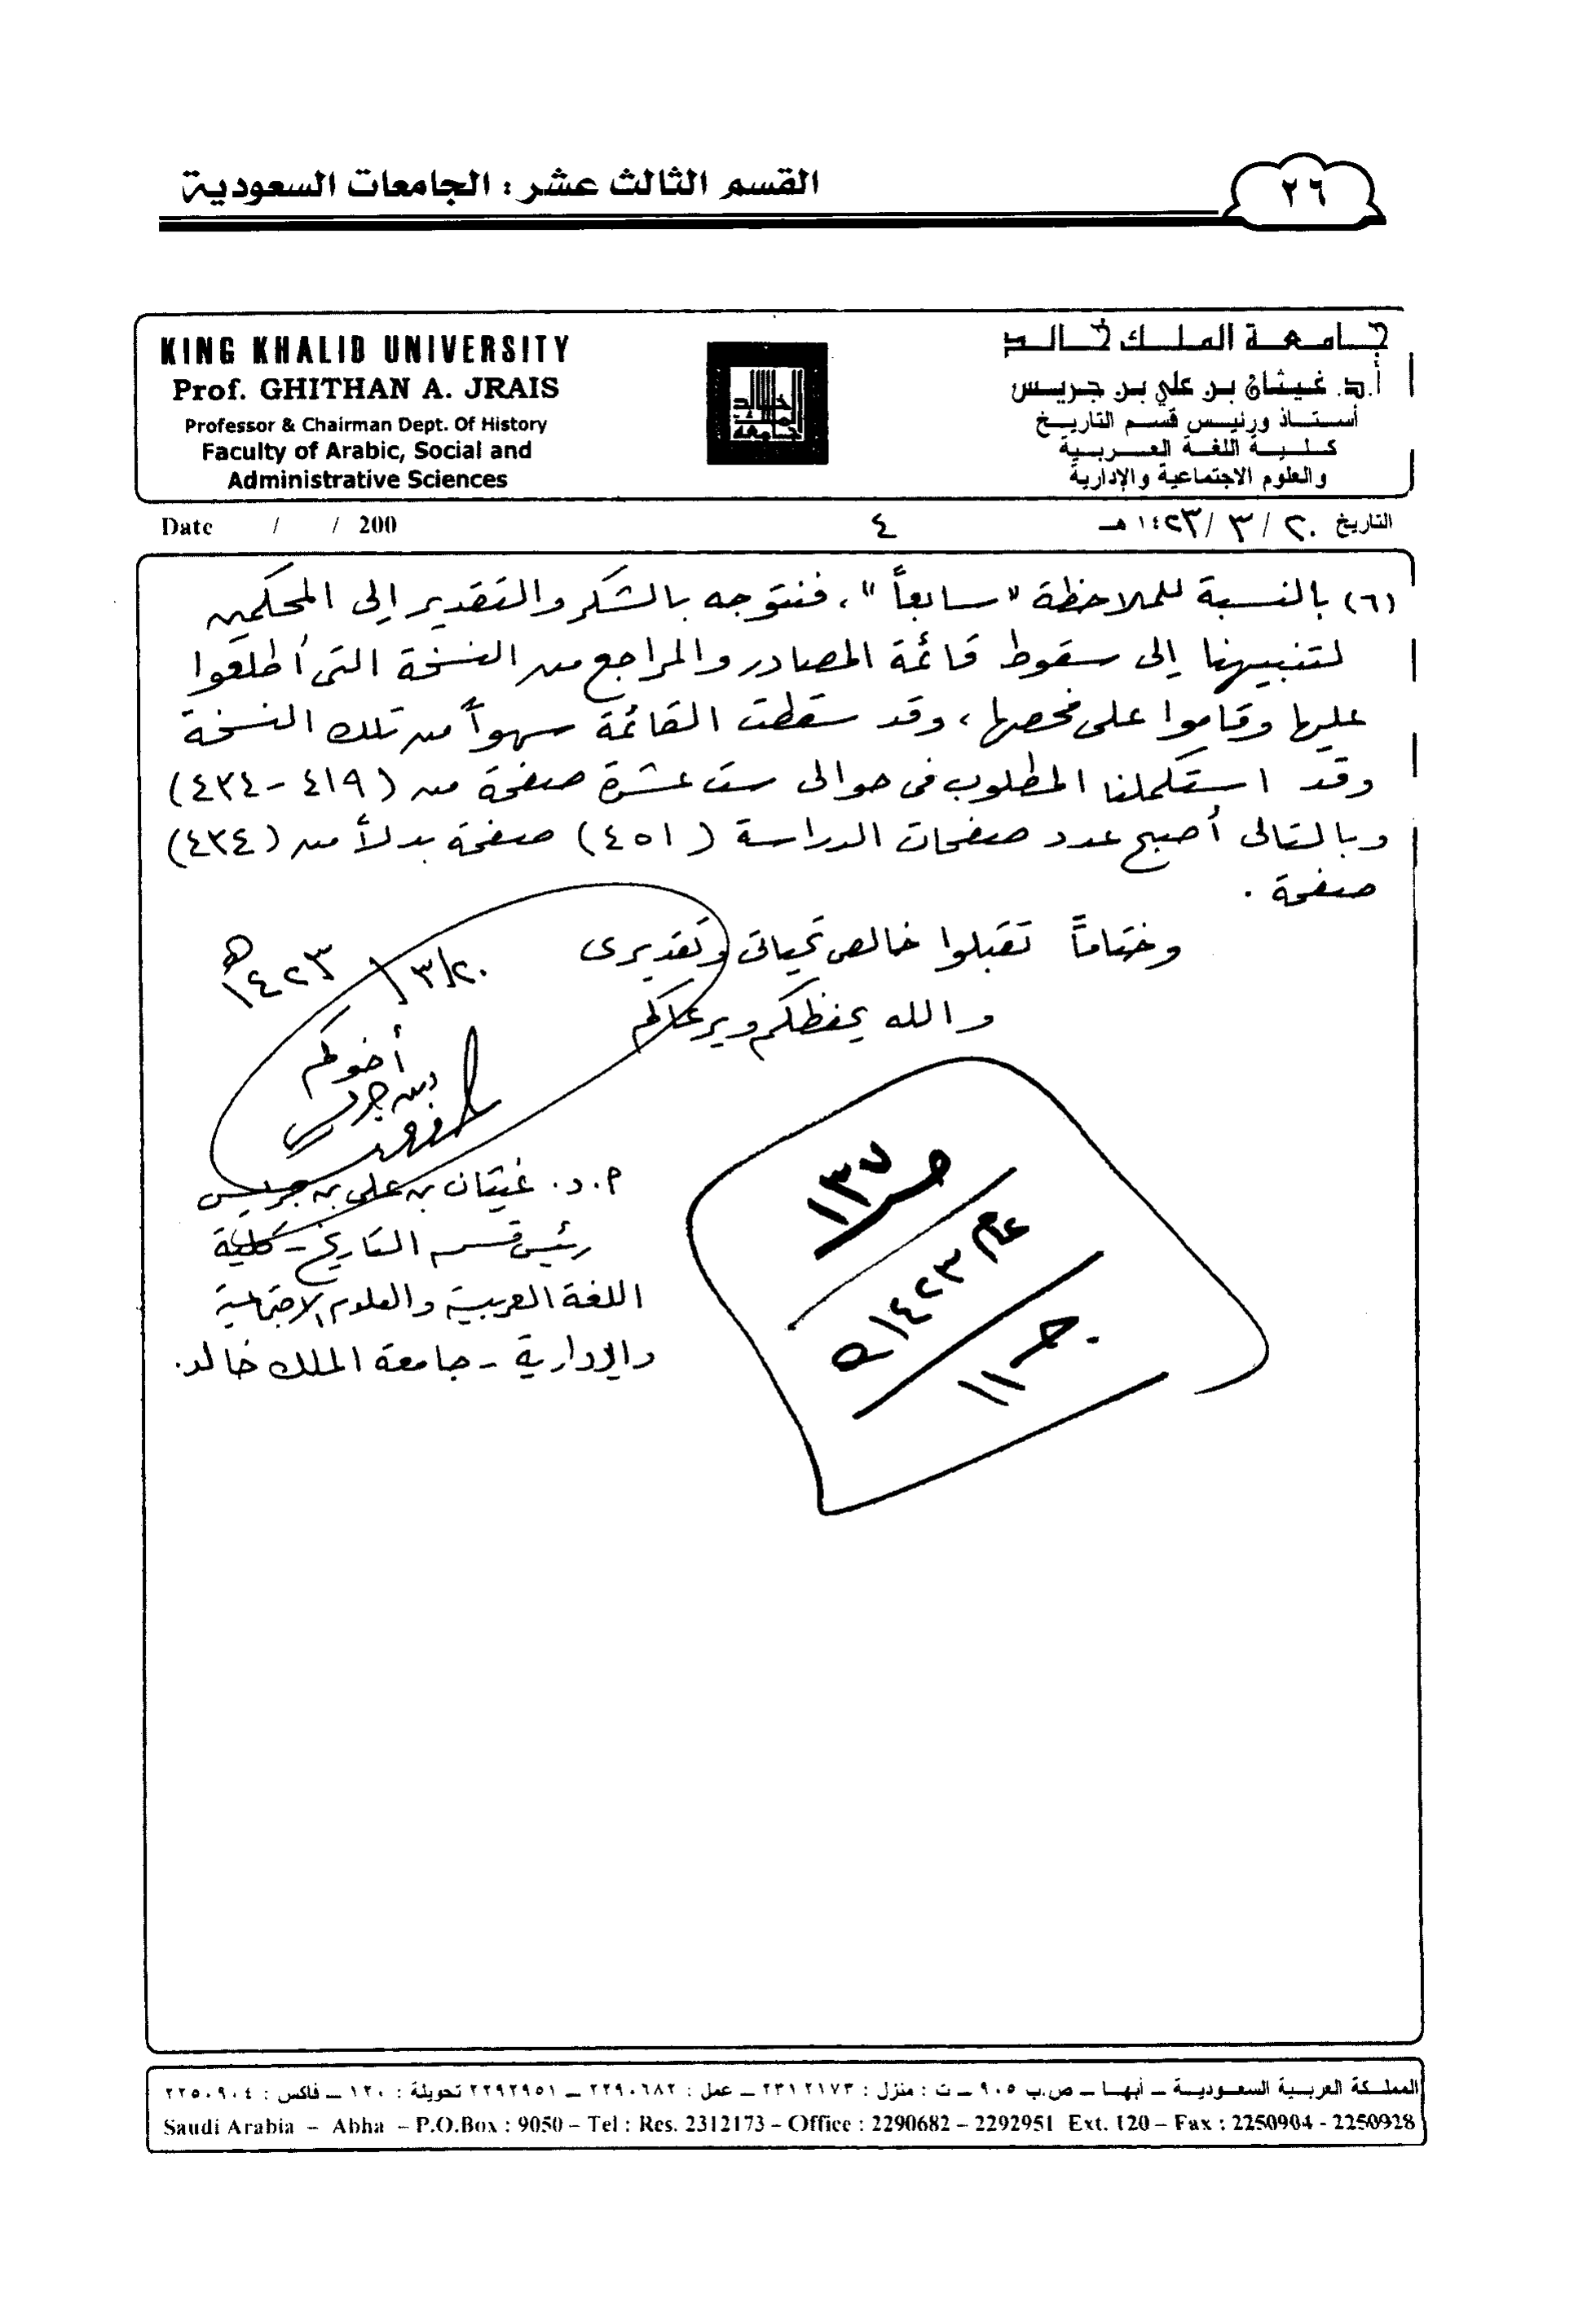 القسم الثالث عشر : الجامعات السعودية
٢٦
KING KHALID UNIVERSITY
Prof. GHITHAN A. JRAIS
Professor & Chairman Dept. Of History
Faculty of Arabic, Social and
Administrative Sciences
جامعة الملك خالد
أ.د. غيثان بن علي بن جريس
أستاذ ورئيس قسم التاريخ
كلية اللغة العربية
والعلوم الاجتماعية والإدارية
Date / / 200
٤
التاريخ ٢٠ / ٣ / ١٤٢٣ هـ
(٦) بالنسبة للملاحظة "سابعاً"، فنتوجه بالشكر والتقدير إلى المحكمين
لتنبيهنا إلى سقوط قائمة المصادر والمراجع من النسخة التى أطلعوا
عليها وقاموا على فحصها، وقد سقطت القائمة سهواً من تلك النسخة
وقد استكملنا المطلوب فى حوالى ست عشرة صفحة من (٤١٩ - ٤٣٤)
وبالتالى أصبح عدد صفحات الدراسة (٤٥١) صفحة بدلاً من (٤٣٤)
صفحة .
وختاماً تقبلوا خالص تحياتى وتقديرى
والله يحفظكم ويرعاكم
٢٠/٣/١٤٢٣هـ
أخوكم
ابن جريس
أ.د. غيثان بن على بن جريس
رئيس قسم التاريخ - كلية
اللغة العربية والعلوم الاجتماعية
والإدارية - جامعة الملك خالد.
ص ١٣٧
عام ١٤٢٣ هـ
ج ١١
المملكة العربية السعودية – أبها – ص.ب ٩٠٥ – ت : منزل : ٢٣١٢١٧٣ – عمل : ٢٢٩٠٦٨٢ – ٢٢٩٢٩٥١ تحويلة : ١٢٠ – فاكس : ٢٢٥٠٩٠٤
Saudi Arabia – Abha – P.O.Box : 9050 – Tel : Res. 2312173 – Office : 2290682 – 2292951 Ext. 120 – Fax : 2250904 - 2250928